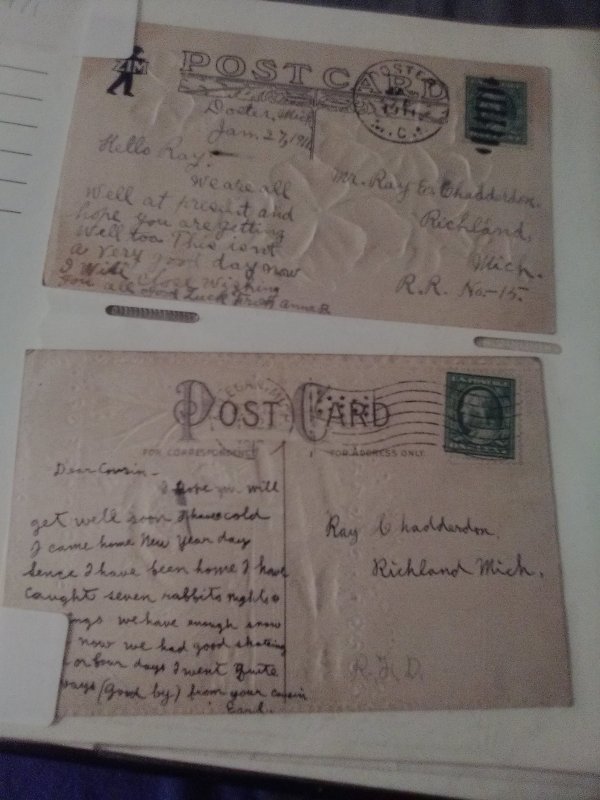 4M
POST CARD
Doster, Mich
Jan. 27, 191
Hello Ray:
We are all
well at present and
hope you are getting
well too. This isn't
a very good day now
I will close wishing
you all good luck from Anna B
Mr. Ray E. Chadderdon.
Richland,
Mich.
R.R. No-15.
POST CARD
U.S. POSTAGE
FOR CORRESPONDENCE
FOR ADDRESS ONLY
Dear Cousin-
I hope you will
get well soon I have cold
I came home New Year day
Sence I have been home I have
caught seven rabbits
we have enough snow
now we had good skating
or four days I went quite
ways (Good by.) from your cousin
Earl.
Ray Chadderdon.
Richland Mich.
R.F.D.